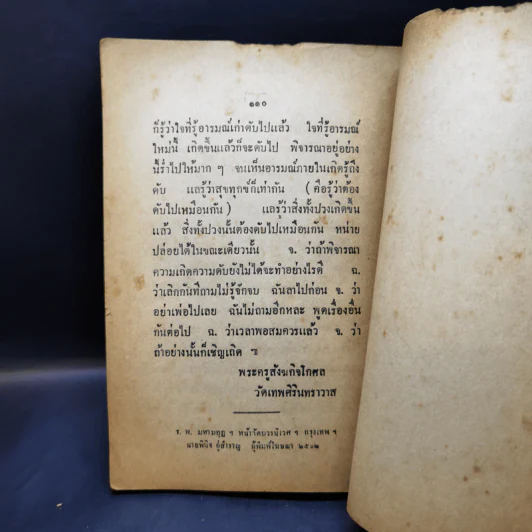 ๑๑๐
ก็รู้ว่าใจที่รู้อารมณ์เก่าดับไปแล้ว ใจที่รู้อารมณ์
ใหม่นี้ เกิดขึ้นแล้วก็จะดับไป พิจารณาอยู่อย่าง
นี้ร่ำไปให้มาก ๆ จนเห็นอารมณ์ภายในเกิดรู้ถึง
ดับ แลรู้ว่าสุขทุกข์ก็เท่ากัน (คือรู้ว่าต้อง
ดับไปเหมือนกัน) แลรู้ว่าสิ่งทั้งปวงเกิดขึ้น
แล้ว สิ่งทั้งปวงนั้นต้องดับไปเหมือนกัน หน่าย
ปล่อยได้ในขณะเดียวนั้น จ. ว่าถ้าพิจารณา
ความเกิดความดับยังไม่ได้จะทำอย่างไรดี ฉ.
ว่าเลิกกันทีถามไม่รู้จักจบ ฉันลาไปก่อน จ. ว่า
อย่าเพ่อไปเลย ฉันไม่ถามอีกหละ พูดเรื่องอื่น
กันต่อไป ฉ. ว่าเวลาพอสมควรแล้ว จ. ว่า
ถ้าอย่างนั้นก็เชิญเถิด ๚
พระครูสังฆกิจโกศล
วัดเทพศิรินทราวาส
ร. พ. มหามกุฏ ฯ หน้าวัดบวรนิเวศ ฯ กรุงเทพ ฯ
นายพินิจ อู่สำราญ ผู้พิมพ์โฆษณา ๒๕๐๒